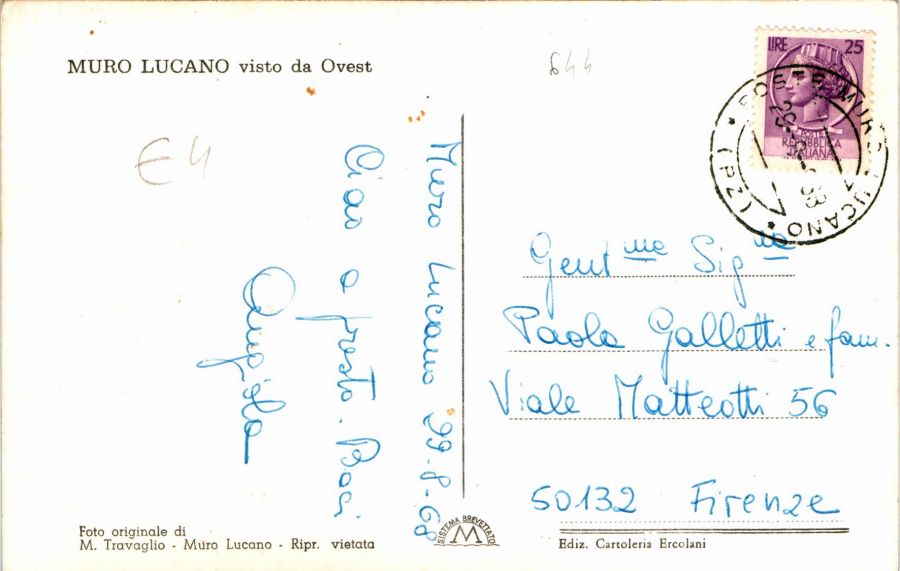 MURO LUCANO visto da Ovest
644
E 4
LIRE 25
POSTE
REPUBBLICA
ITALIANA
POSTE MURO LUCANO
(PZ)
Muro Lucano 29-8-68
Ciao a presto. Baci
Gent me Sig na
Paola Galletti e fam.
Viale Matteotti 56
50132 Firenze
Foto originale di
M. Travaglio - Muro Lucano - Ripr. vietata
SISTEMA BREVETTATO
M
Ediz. Cartoleria Ercolani